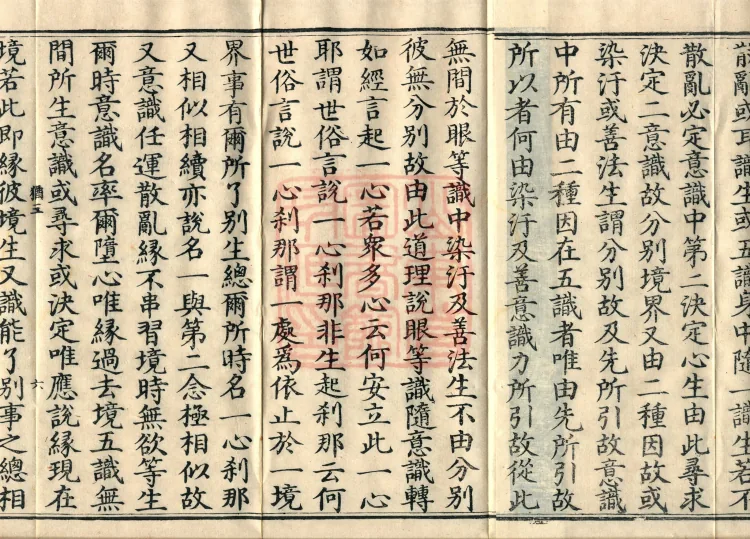 散亂或耳識生或五識身中隨一識生若不
散亂必定意識中第二決定心生由此尋求
決定二意識故分別境界又由二種因故或
染汙或善法生謂分別故及先所引故意識
中所有由二種因在五識者唯由先所引故
所以者何由染汙及善意識力所引故從此
無間於眼等識中染汙及善法生不由分別
彼無分別故由此道理說眼等識隨意識轉
如經言起一心若衆多心云何安立此一心
耶謂世俗言說一心刹那非生起刹那云何
世俗言說一心刹那謂一處爲依止於一境
界事有爾所了別生總爾所時名一心刹那
又相似相續亦說名一與第二念極相似故
又意識任運散亂緣不串習境時無欲等生
爾時意識名率爾墮心唯緣過去境五識無
間所生意識或尋求或決定唯應說緣現在
猶五
六
境若此即緣彼境生又識能了別事之總相